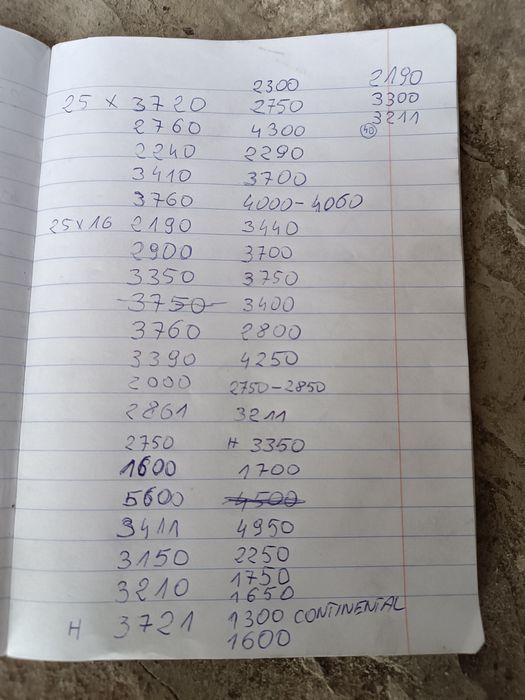 2300 2190
25 x 3720 2750 3300
2760 4300 3211
40
2240 2290
3410 3700
3760 4000-4060
25x16 2190 3440
2900 3700
3350 3750
3750 3400
3760 2800
3390 4250
2000 2750-2850
2861 3211
2750 H 3350
1600 1700
5600 4500
3411 4950
3150 2250
1750
3210 1650
H 3721 1300 CONTINENTAL
1600